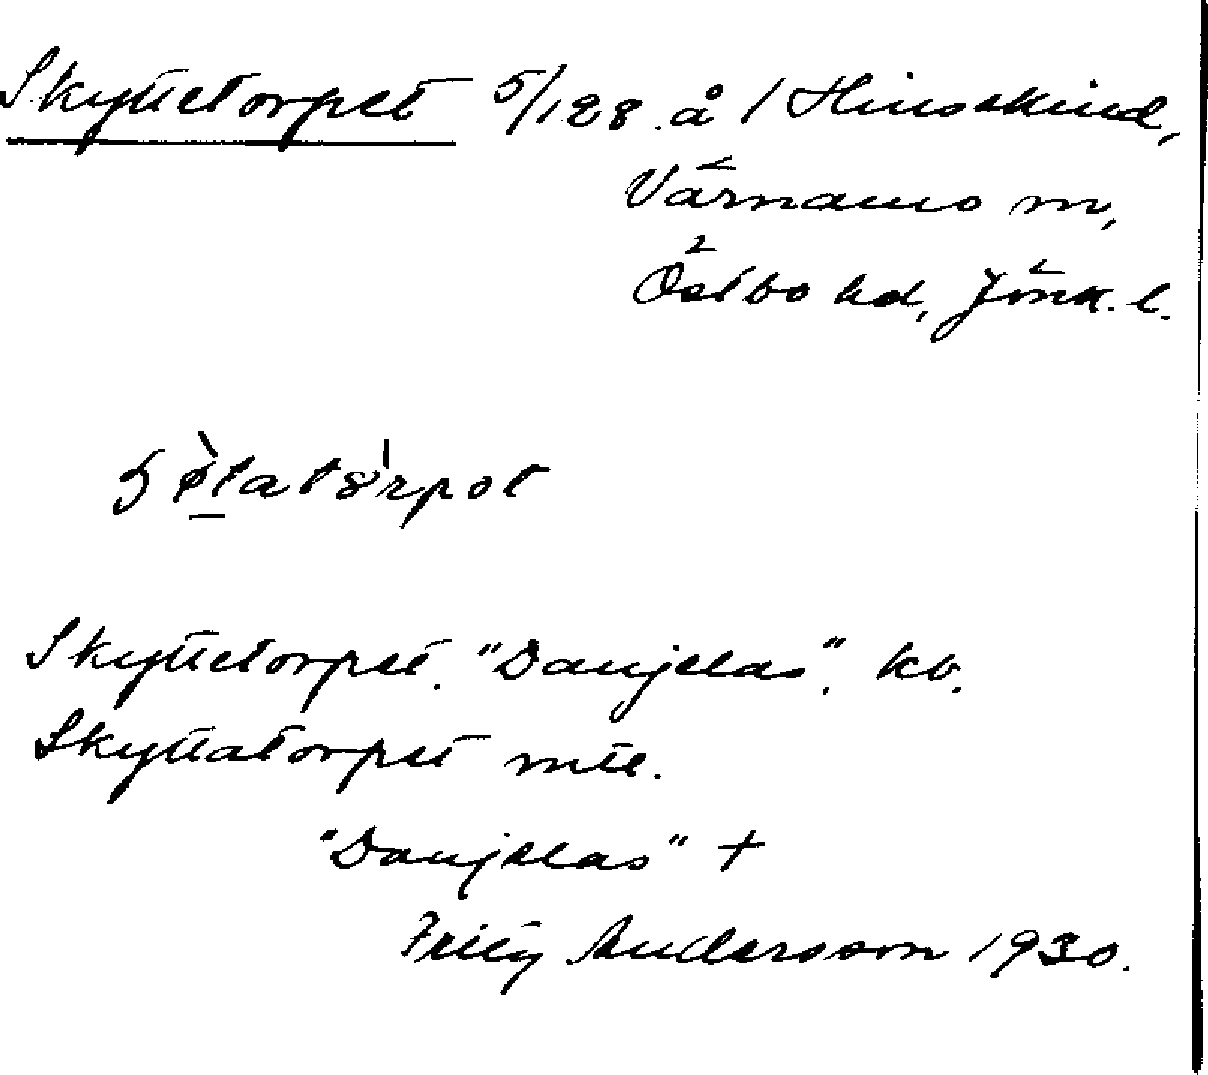 Skyttetorpet 5/128 å 1 Hinsekind,
Värnamo m,
Östbo hd, Jönk. l.
Skyttetorpet. "Danjelas". kb.
Skyttatorpet mtl.
"Danjelas" +
Fritz Andersson 1930.